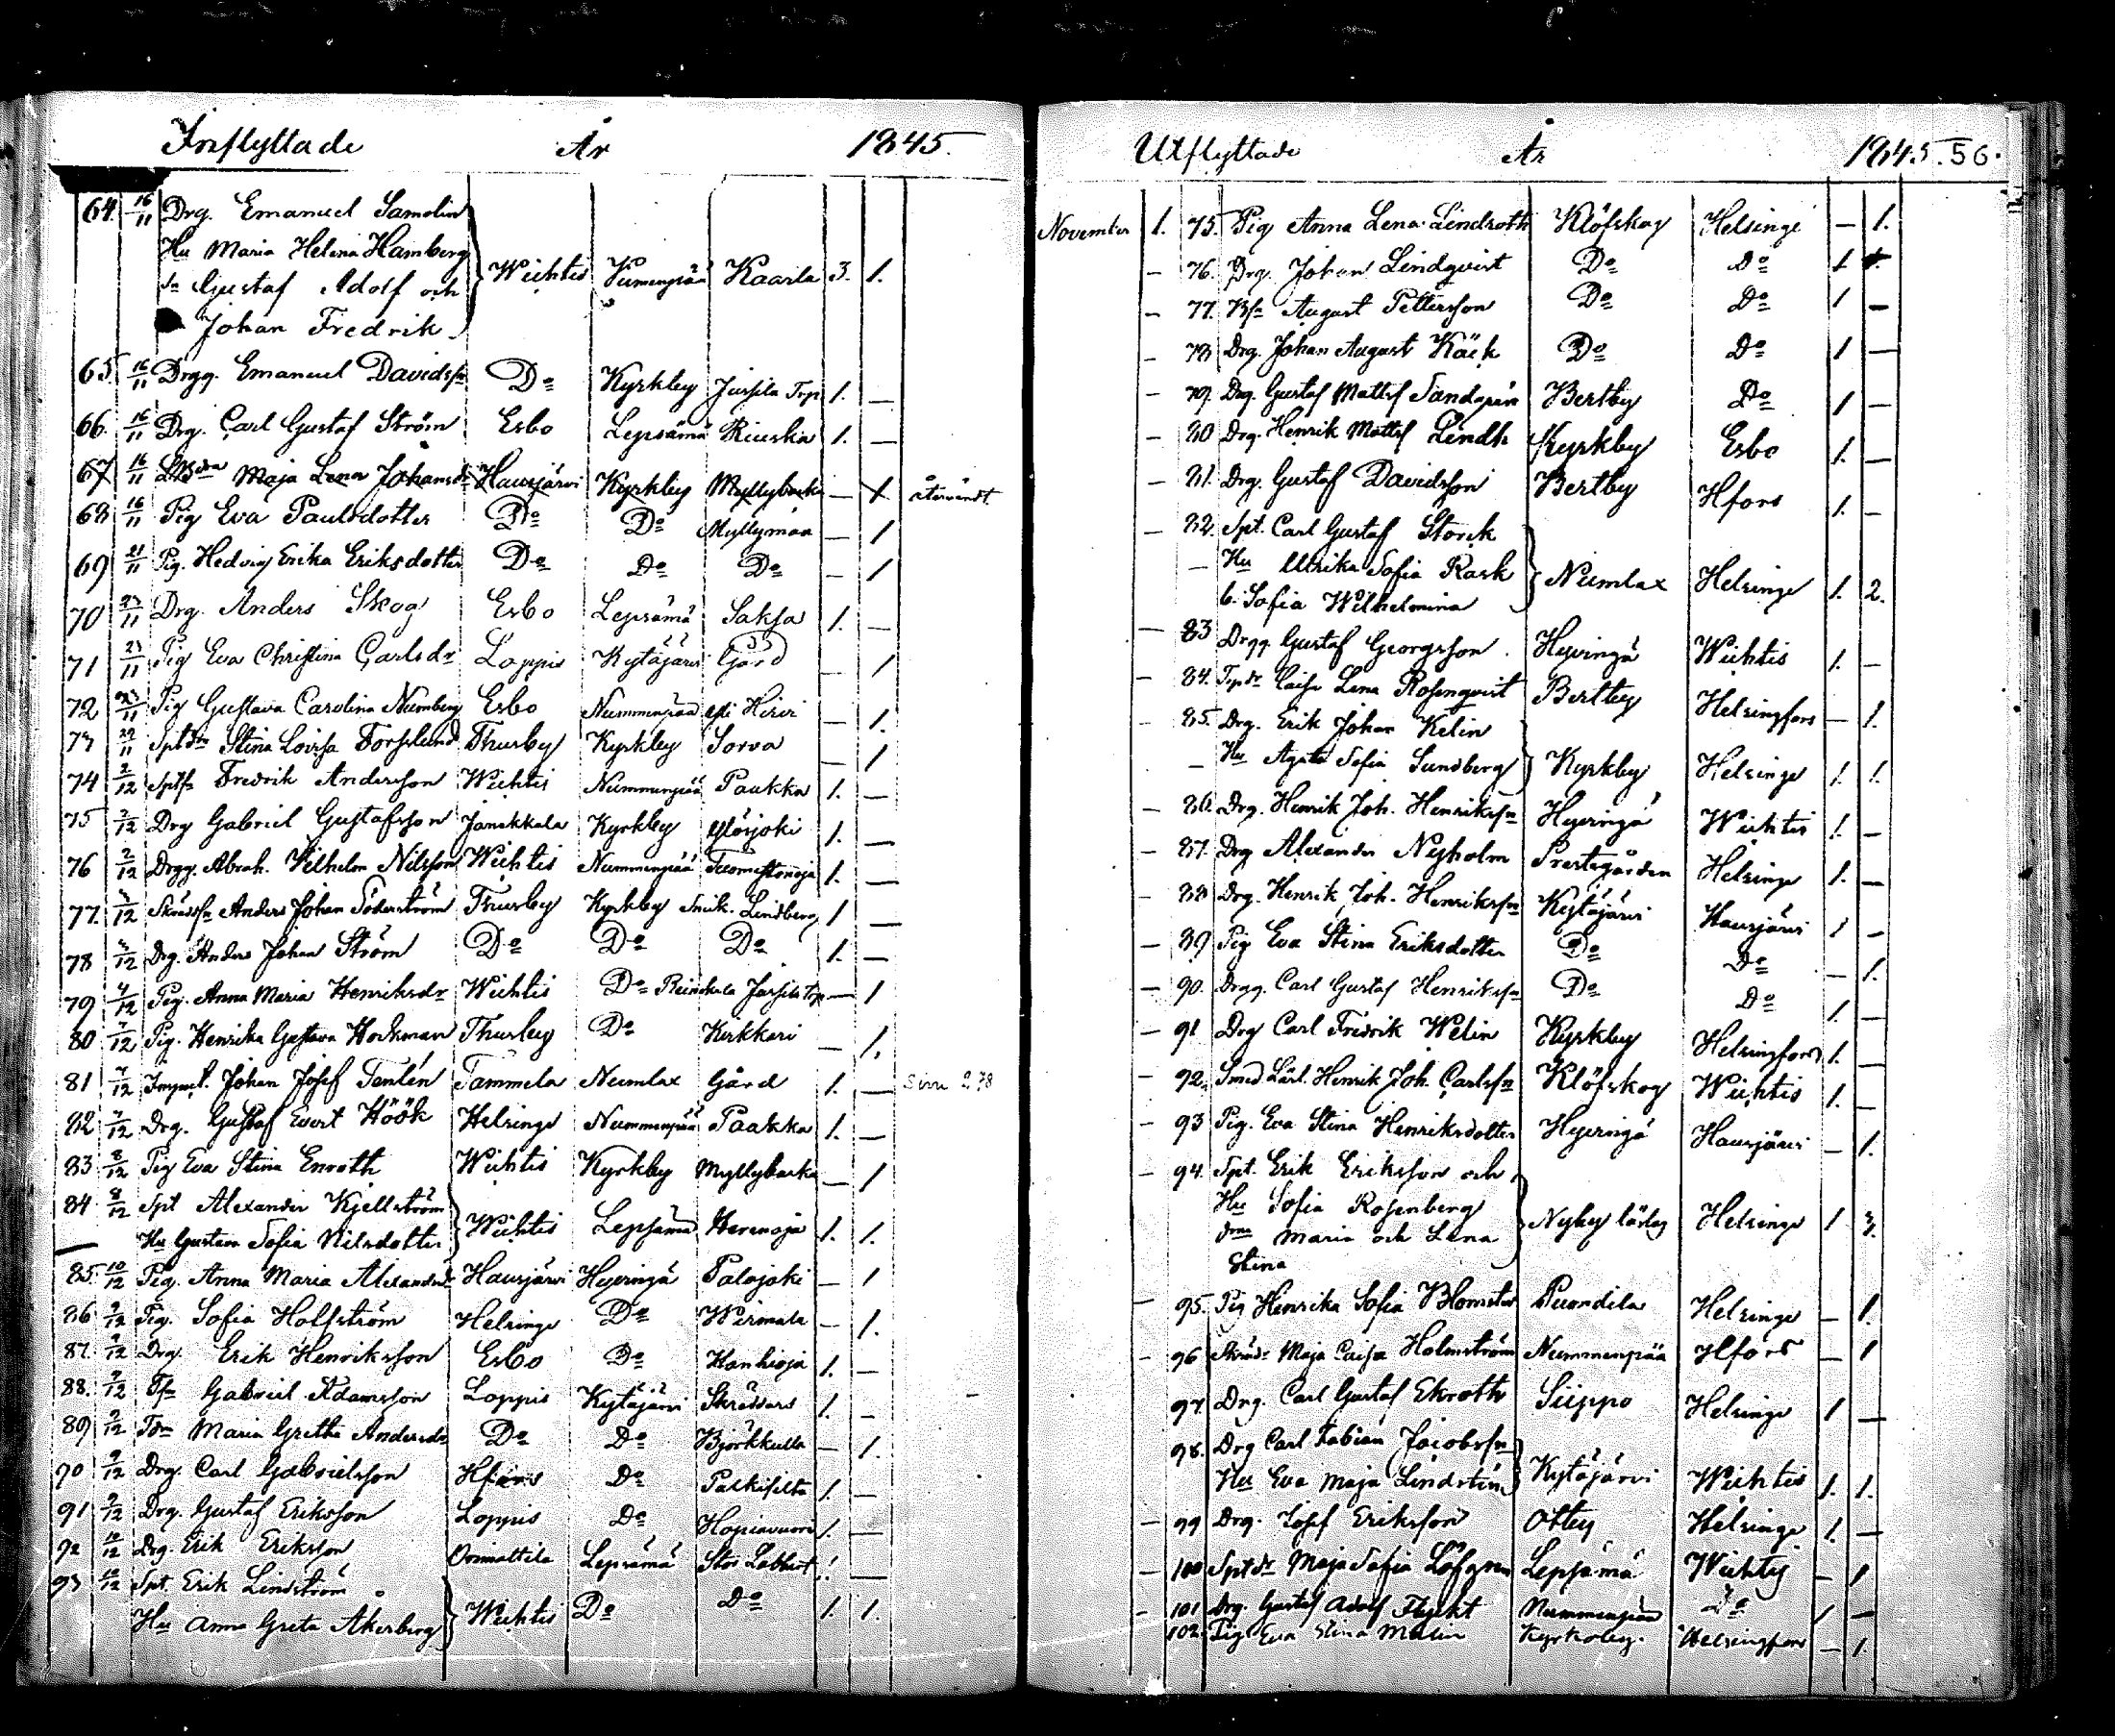 Inflyttade År 1845.
64. 16/11 Drg. Emanuel Samelin
Hu Maria Helena Hamberg
Sn Gustaf Adolf och Wichtis Nummenpää Kaarla 3. 1.
Johan Fredrik
65. 16/11 Drgg. Emanuel Davidsn Do Kyrkby Jussila Trp 1. —
66. 16/11 Drg. Carl Gustaf Ström Esbo Lepsämä Riuska 1. —
67 16/11 Maja Lena Johansdr Hausjärvi Kyrkby Myllybacka — 1 återvändt
68 16/11 Pig Eva Paulsdotter Do Do Myllymaa — 1
69 21/11 Pig. Hedvig Erika Eriksdotter Do Do Do — 1
70 23/11 Drg. Anders Skog Esbo Lepsämä Saksa 1. —
71 23/11 Pig Eva Christina Carlsdr Loppis Kytäjärvi Gård — 1
72 23/11 Pig Gustava Carolina Numberg Esbo Nummenpää Yli Hirvi — 1.
73 29/11 Sptdr Stina Lovisa Forsslund Thusby Kyrkby Sorva — 1
74 2/12 Sptsn Fredrik Andersson Wichtis Nummenpää Paukka 1. —
75 2/12 Drg Gabriel Gustafsson Janakkala Kyrkby Ylösjoki 1. —
76 2/12 Drgg. Abrah. Vilhelm Nilsson Wichtis Nummenpää 1. —
77. 4/12 Skrädsn Anders Johan Söderström Thusby Kyrkby Snik. Lindberg 1 —
78 4/12 Drg. Anders Johan Ström Do Do Do 1. —
79 4/12 Pig. Anna Maria Henriksdr Wichtis Do Reinikala Jussila Trp — 1
80 7/12 Pig. Henrika Gustava Hockman Thusby Do Kerkkari — 1.
81 7/12 Inspect. Johan Josef Tenlén Tammela Numlax Gård 1. — Sivu 278
82 7/12 Drg. Gustaf Evert Höök Helsinge Nummenpää Paakka 1. —
83 8/12 Pig Eva Stina Enroth Wichtis Kyrkby Myllybacka — 1
84 8/12 Spt Alexander Kjellström
— Hu Gustava Sofia Nilsdotter Wichtis Lepsämä Herenoja 1. 1.
85. 10/12 Pig. Anna Maria Alexandersdr Hausjärvi Hyvingä Palojoki — 1
86 9/12 Pig. Sofia Holfström Helsinge Do Wirmala — 1.
87. 9/12 Drg. Erik Henriksson Esbo Do Kanhioja 1. —
88. 9/12 Tsn Gabriel Adamsson Loppis Kytäjärvi Skräddars 1. —
89 9/12 Tdr Maria Gretha Andersdr Do Do Björkkulla — 1.
90 9/12 Drg. Carl Gabrielsson Hfors Do Palkisilta 1. —
91 9/12 Drg. Gustaf Eriksson Loppis Do Hopiavuori 1. —
92 10/12 Drg. Erik Eriksson Orimattila Lepsämä Stor Labbart 1. —
93 10/12 Spt. Erik Lindström
Hu Anna Greta Åkerberg Wichtis Do Do 1. 1.
Utflyttade År 1845. 56.
November 1. 75. Pig Anna Lena Lindroth Klöfskog Helsinge — 1.
— 76. Drg. Johan Lindqvist Do Do 1
— 77. Bsn August Pettersson Do Do 1 —
— 78 Drg. Johan August Käck Do Do 1 —
— 79. Drg. Gustaf Mattsf Sandgrén Bertby Do 1 —
— 80 Drg. Henrik Mattsf Lindh Kyrkby Esbo 1. —
— 81. Drg. Gustaf Davidsson Bertby Hfors 1. —
— 82. Spt. Carl Gustaf Storck
— Hu Ulrika Sofia Rask Numlax Helsinge 1. 2.
b. Sofia Wilhelmina
— 83 Drgg. Gustaf Georgsson. Hyvingä Wichtis 1. —
— 84. Trpdr Caisa Lena Rosenqvist Bertby Helsingfors — 1.
— 85. Drg. Erik Johan Kelin
— Hu Agata Sofia Sundberg Kyrkby Helsinge 1. 1.
— 86. Drg. Henrik Joh. Henrikssn Hyvingä Wichtis 1. —
— 87. Drg Alexander Nyholm Prestegården Helsinge 1. —
— 88 Drg. Henrik Joh. Henrikssn Kytäjärvi Hausjärvi 1 —
— 89 Pig Eva Stina Eriksdotter Do Do — 1.
— 90. Drgg. Carl Gustaf Henrikssn Do Do 1. —
— 91 Drg Carl Fredrik Welin Kyrkby Helsingfors 1. —
— 92. Smed Lärl. Henrik Joh. Carlssn Klöfskog Wichtis 1. —
— 93 Pig. Eva Stina Henriksdotter Hyvingä Hausjärvi — 1.
— 94. Spt. Erik Eriksson och
Hu Sofia Rosenberg
drar Maria och Lena Nyby lärlag Helsinge 1 3.
Stina
— 95. Pig Henrika Sofia Blomster Puondila Helsinge — 1.
— 96 Skrädr Maja Caisa Holmström Nummenpää Hfors — 1
— 97. Drg. Carl Gustaf Ekroth Siippo Helsinge 1 —
98. Drg Carl Fabian Jacobssn
Hu Eva Maja Lindström Kytäjärvi Wichtis 1. 1.
— 99 Drg. Josef Eriksson Otby Helsinge 1. —
— 100 Sptdr Maja Sofia Löfgren Lepsämä Wichtis — 1
— 101 Drg. Gustaf Adolf Flyckt Nummenpää Do 1 —
102. Pig Eva Stina Malin Kyrkoby. Helsingfors — 1.